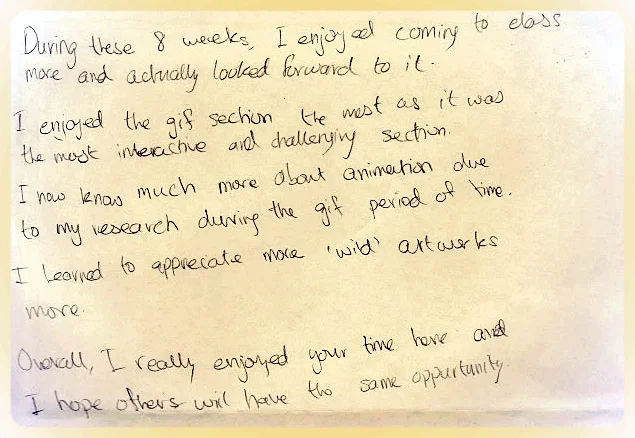 During these 8 weeks, I enjoyed coming to class
more and actually looked forward to it.
I enjoyed the gif section the most as it was
the most interactive and challenging section.
I now know much more about animation due
to my research during the gif period of time.
I learned to appreciate more 'wild' artworks
more.
Overall, I really enjoyed your time here and
I hope others will have the same oppurtunity.